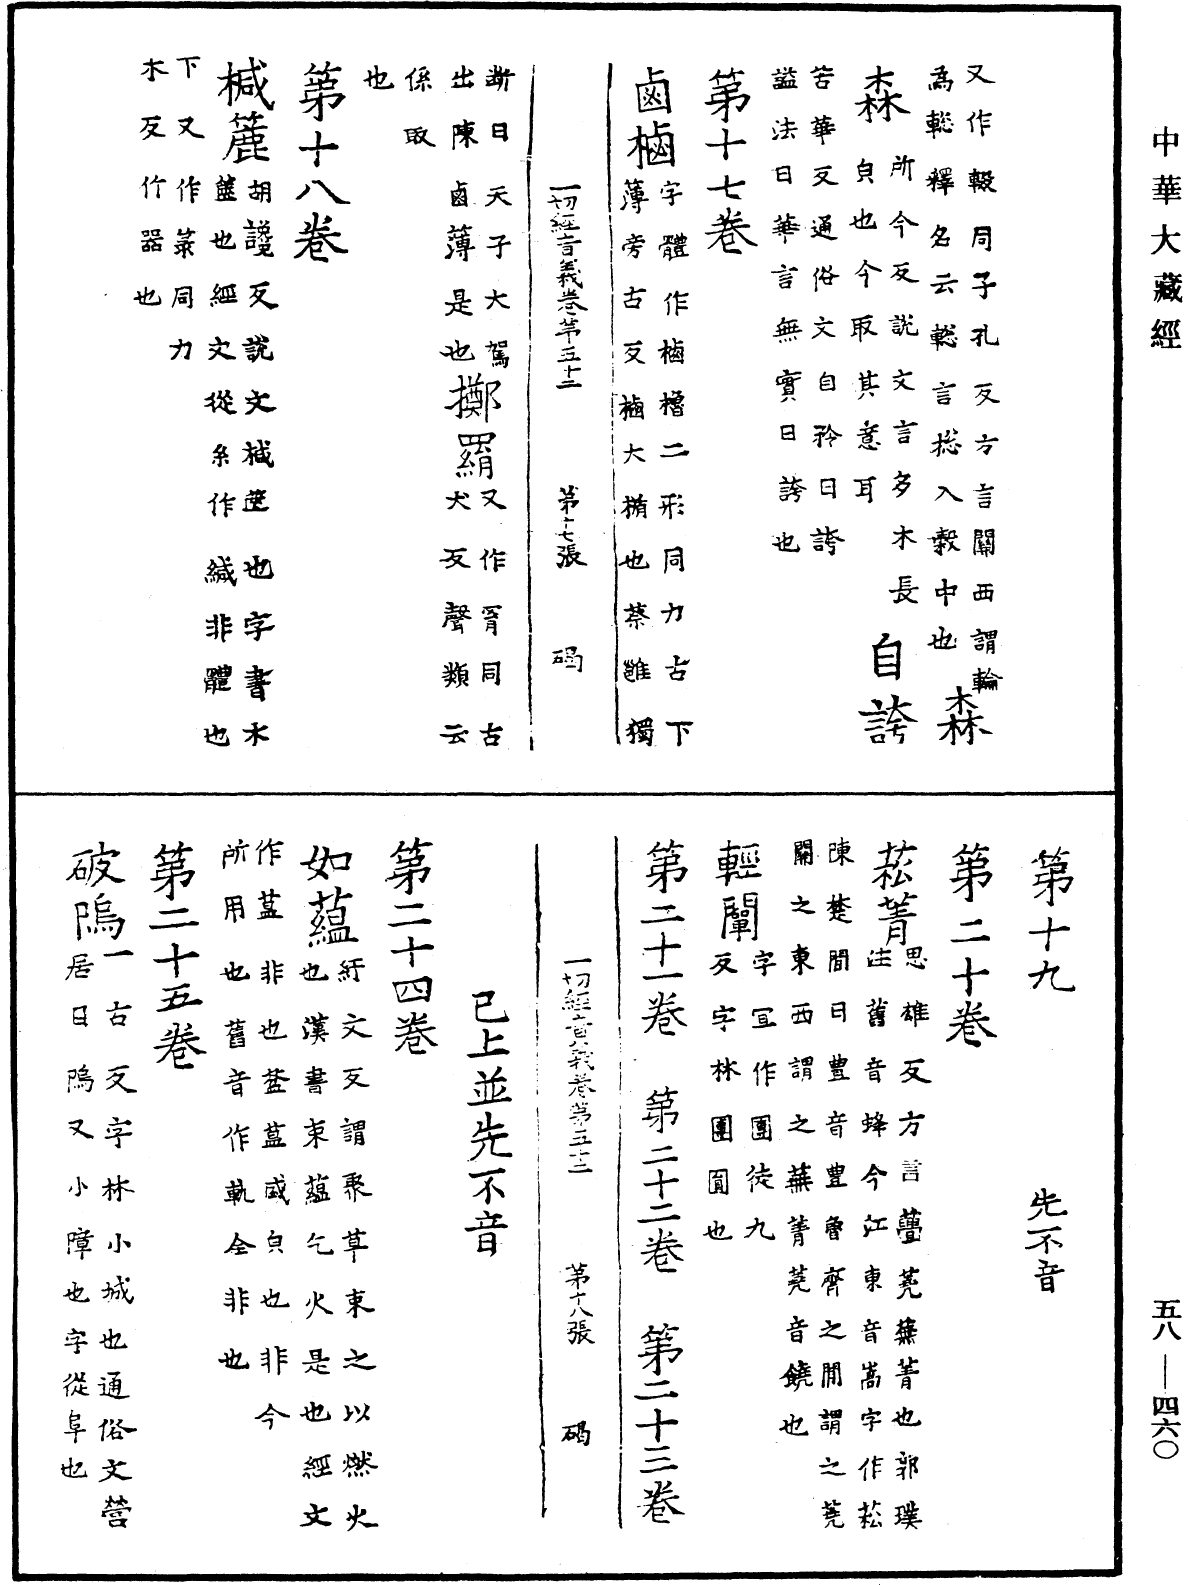 中華大藏經
又作輟同子孔反方言關西謂輪
為䡯釋名云䡯言揔入轂中也
森森
所今反說文言多木長
皃也今取其意耳
自誇
苦華反通俗文自矜曰誇
謚法曰華言無實曰誇也
第十七卷
鹵樐
字體作樐櫓二形同力古下
薄旁古反樐大楯也蔡邕獨
一切經音義卷第五十二 第十七張 碣
断曰天子大駕
出陳鹵薄是也
擲羂
又作罥同古
犬反聲類云
係取
也
第十八卷
椷簏
胡讒反說文椷篋也字書木
篋也經文從糸作緘非體也
下又作箓同力
木反竹器也
第十九 先不音
第二十卷
菘菁
思雄反方言蘴蕘蕪菁也郭璞
注舊音蜂今江東音嵩字作菘
陳楚間曰豊音豊魯齊之間謂之蕘
關之東西謂之蕪菁蕘音饒也
輕闡
字宜作團徒九
反字林團圓也
第二十一卷 第二十二卷 第二十三卷
一切經音義卷第五十二 第十八張 碣
已上並先不音
第二十四卷
如蘊
紆文反謂聚草束之以燃火
也漢書束蘊乞火是也經文
作蒀非也葢蒀盛皃也非今
所用也舊音作軌全非也
第二十五卷
破隖
一古反字林小城也通俗文營
居曰隖又小障也字從阜也
五八—四六〇